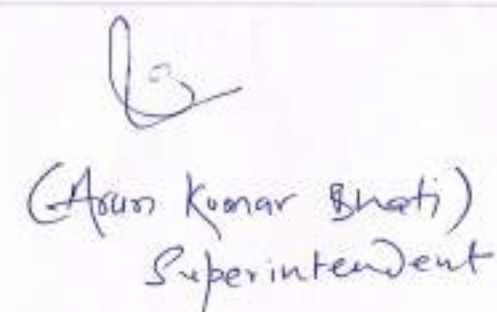 (Arun Kumar Bhati)
Superintendent